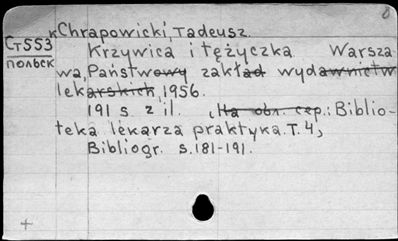 Chrapowicki, Tadeusz.
Ст553
польск
Krzywica i tężyczka. Warsza
wa, Państwowy zakład wydawnictw
lekarskich, 1956.
191 s z il. (На обл. сер.: Biblio-
teka lekarza praktyka. T. 4,
Bibliogr. s. 181-191.